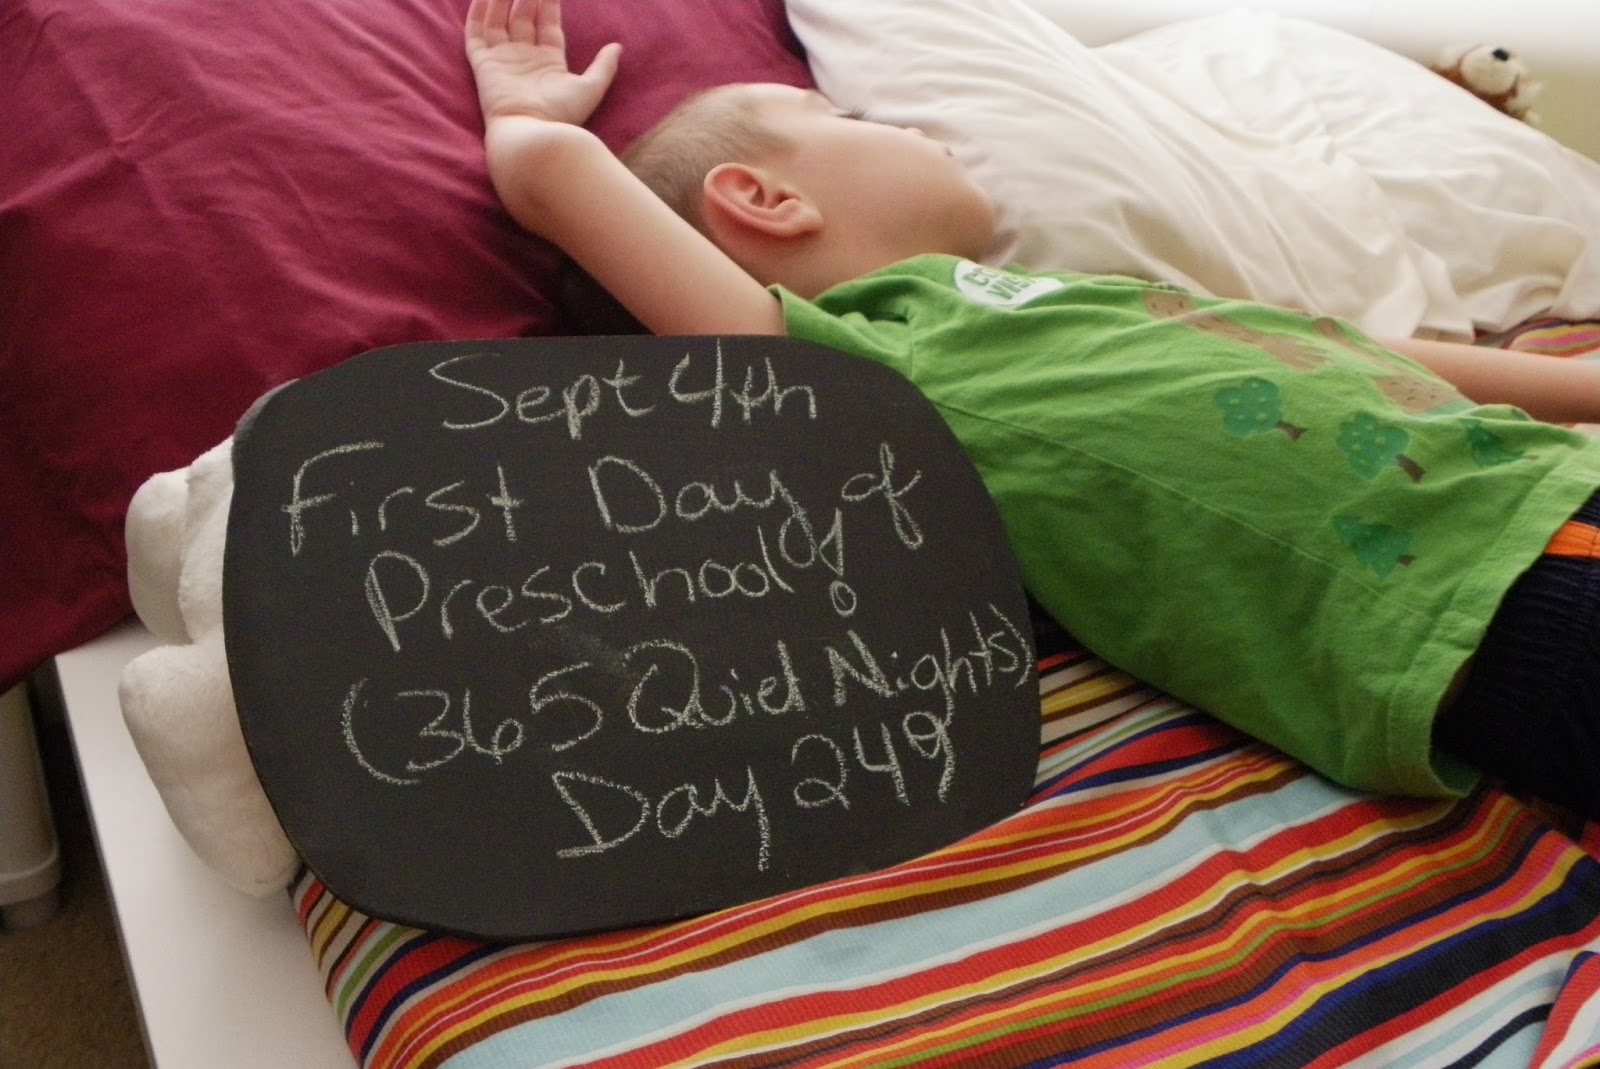 Sept 4th
First Day of
Preschool!
(365 Quiet Nights)
Day 249